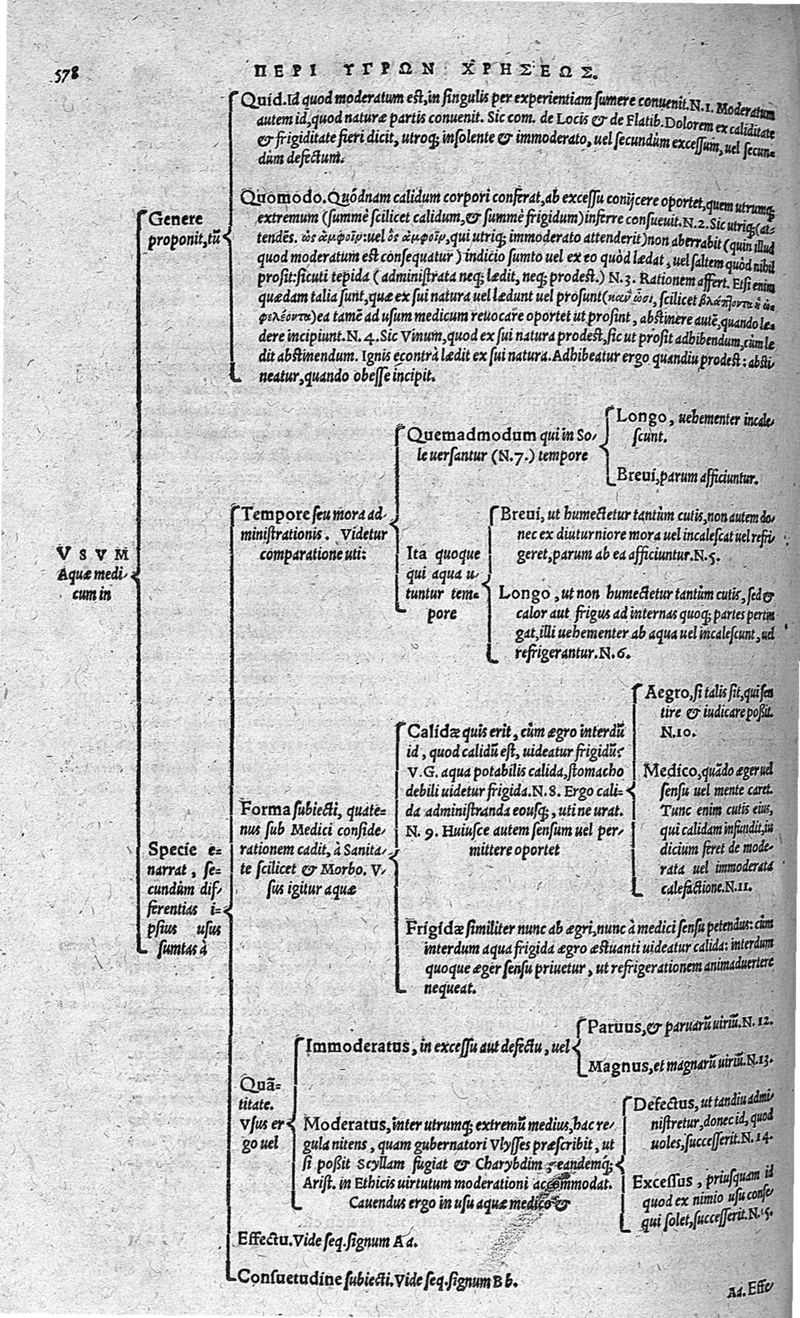 578
ΠΕΡΙ ΥΓΡΩΝ ΧΡΗΣΕΩΣ.
Quid. Id quod moderatum est, in singulis per experientiam sumere conuenit. N. 1. Moderatum
autem id, quod naturæ partis conuenit. Sic com. de Locis & de Flatib. Dolorem ex caliditate
& frigiditate fieri dicit, utroq; insolente & immoderato, uel secundùm excessum, uel secun-
dùm defectum.
Genere
proponit, tũ
Quomodo. Quódnam calidum corpori conferat, ab excessu conijcere oportet, quem utrumq;
extremum (summè scilicet calidum, & summè frigidum) inferre consueuit. N. 2. Sic utriq; (at-
tendẽs. ὡς ἀμφοῖν: uel ὃς ἀμφοῖν, qui utriq; immoderato attenderit) non aberrabit (quin illud
quod moderatum est consequatur) indicio sumto uel ex eo quòd lædat, uel saltem quòd nihil
prosit: sicuti tepida (administrata neq; lædit, neq; prodest.) N. 3. Rationem affert. Etsi enim
quædam talia sunt, quæ ex sui natura uel lædunt uel prosunt ( scilicet βλάπτοντα ἢ ὠ-
φελέοντα) ea tamẽ ad usum medicum reuocare oportet ut prosint, abstinere autẽ, quando læ-
dere incipiunt. N. 4. Sic Vinum, quod ex sui natura prodest, sic ut prosit adhibendum, cùm læ-
dit abstinendum. Ignis econtrà lædit ex sui natura. Adhibeatur ergo quandiu prodest: absti-
neatur, quando obesse incipit.
VSVM
Aquæ medi-
cum in
Tempore seu mora ad-
ministrationis. Videtur
comparatione uti:
Quemadmodum qui in So-
le uersantur (N. 7.) tempore
Longo, uehementer incale-
scunt.
Breui, parum afficiuntur.
Ita quoque
qui aqua u-
tuntur tem-
pore
Breui, ut humectetur tantùm cutis, non autem do-
nec ex diuturniore mora uel incalescat uel refri-
geret, parum ab ea afficiuntur. N. 5.
Longo, ut non humectetur tantùm cutis, sed &
calor aut frigus ad internas quoq; partes pertin
gat, illi uehementer ab aqua uel incalescunt, uel
refrigerantur. N. 6.
Specie e-
narrat, se-
cundùm dif-
ferentias i-
psius usus
sumtas à
Forma subiecti, quate-
nus sub Medici conside-
rationem cadit, à Sanita-
te scilicet & Morbo. V-
sus igitur aquæ
Calidæ quis erit, cùm ægro interdũ
id, quod calidũ est, uideatur frigidũ?
V. G. aqua potabilis calida, stomacho
debili uidetur frigida. N. 8. Ergo cali-
da administranda eousq;, uti ne urat.
N. 9. Huiusce autem sensum uel per-
mittere oportet
Aegro, si talis sit, qui sen
tire & iudicare possit.
N. 10.
Medico, quãdo æger uel
sensu uel mente caret.
Tunc enim cutis eius,
qui calidam infundit, iu
dicium feret de mode-
rata uel immoderata
calefactione. N. 11.
Frigidæ similiter nunc ab ægri, nunc à medici sensu petendus: cùm
interdum aqua frigida ægro æstuanti uideatur calida: interdum
quoque æger sensu priuetur, ut refrigerationem animaduertere
nequeat.
Quã-
titate.
Vsus er-
go uel
Immoderatus, in excessu aut defectu, uel
Paruus, & paruarũ uiriũ. N. 12.
Magnus, et magnarũ uiriũ. N. 13.
Moderatus, inter utrumq; extremũ medius, hac re-
gula nitens, quam gubernatori Vlysses præscribit, ut
si possit Scyllam fugiat & Charybdim, eandemq;
Arist. in Ethicis uirtutum moderationi accommodat.
Cauendus ergo in usu aquæ medico &
Defectus, ut tandiu admi-
nistretur, donec id, quod
uoles, successerit. N. 14.
Excessus, priusquam id
quod ex nimio usu conse-
qui solet, successerit. N. 15.
Effectu. Vide seq. signum Aa.
Consuetudine subiecti. Vide seq. signum Bb.
Aa. Effe